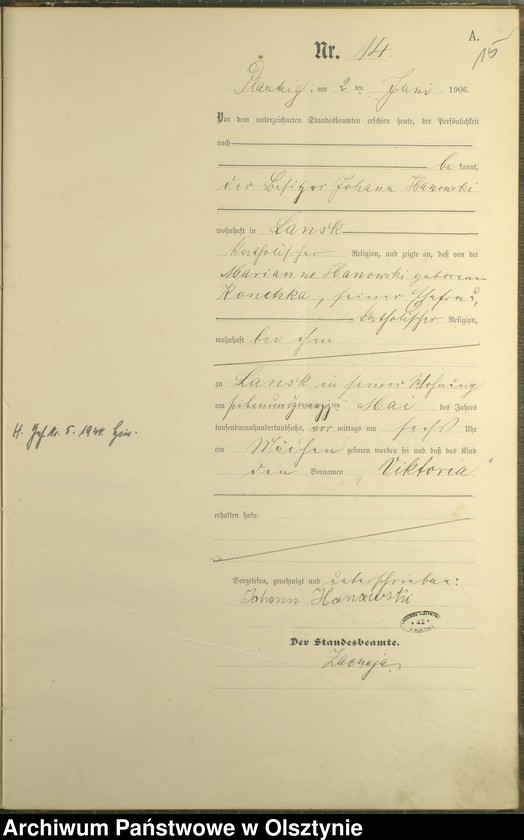 A.
15
Nr. 14.
Plautzig, am 2 ten Juni 1906.
Vor dem unterzeichneten Standesbeamten erschien heute, der Persönlichkeit
nach
be kannt,
der Besitzer Johann Hanowski
wohnhaft in Lansk
katholischer Religion, und zeigte an, daß von der
Marianne Hanowski geborenen
Konetzka, seiner Ehefrau,
katholischer Religion,
wohnhaft bei ihm
zu Lansk in seiner Wohnung
am siebenundzwanzigsten Mai des Jahres
tausendneunhundertundsechs, vor mittags um sechs Uhr
ein Mädchen geboren worden sei und daß das Kind
den Vornamen „Viktoria“
H. Nr. 5. 1941
erhalten habe.
Vorgelesen, genehmigt und unterschrieben:
Johann Hanowski
42
Der Standesbeamte.
Archiwum Państwowe w Olsztynie